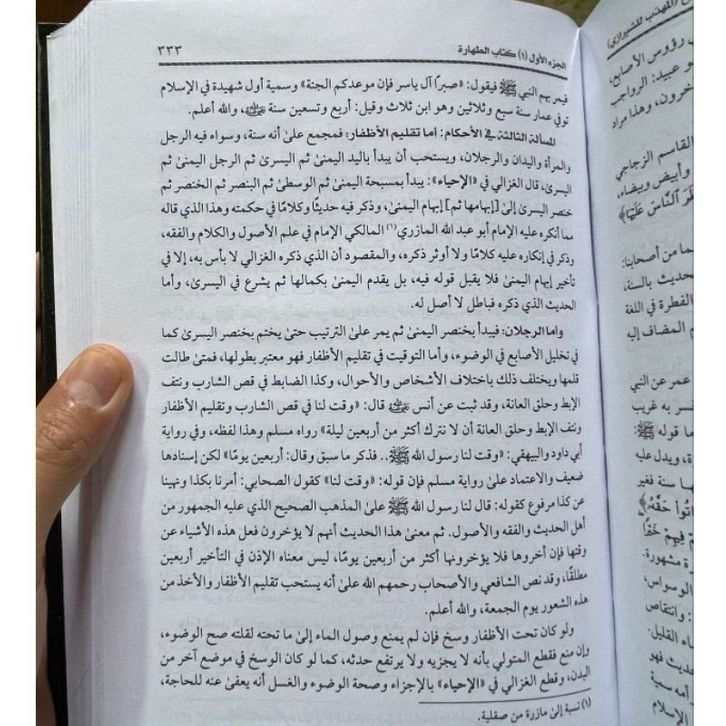 الجزء الأول (١) كتاب الطهارة ٣٣٣
فيمر بهم النبي ﷺ فيقول: «صبرًا آل ياسر فإن موعدكم الجنة» وسمية أول شهيدة في الإسلام
توفي عمار سنة سبع وثلاثين وهو ابن ثلاث وقيل: أربع وتسعين سنة ﷺ، والله أعلم.
المسألة الثالثة في الأحكام: أما تقليم الأظفار: فمجمع على أنه سنة، وسواء فيه الرجل
والمرأة واليدان والرجلان، ويستحب أن يبدأ باليد اليمنى ثم اليسرى ثم الرجل اليمنى ثم
اليسرى، قال الغزالي في «الإحياء»: يبدأ بمسبحة اليمنى ثم الوسطى ثم البنصر ثم الخنصر ثم
خنصر اليسرى إلى [إبهامها ثم] إبهام اليمنى، وذكر فيه حديثًا وكلامًا في حكمته وهذا الذي قاله
مما أنكره عليه الإمام أبو عبد الله المازري(١) المالكي الإمام في علم الأصول والكلام والفقه،
وذكر في إنكاره عليه كلامًا ولا أوثر ذكره، والمقصود أن الذي ذكره الغزالي لا بأس به، إلا في
تأخير إبهام اليمنى فلا يقبل قوله فيه، بل يقدم اليمنى بكمالها ثم يشرع في اليسرى، وأما
الحديث الذي ذكره فباطل لا أصل له.
وأما الرجلان: فيبدأ بخنصر اليمنى ثم يمر على الترتيب حتى يختم بخنصر اليسرى كما
في تخليل الأصابع في الوضوء، وأما التوقيت في تقليم الأظفار فهو معتبر بطولها، فمتى طالت
قلمها ويختلف ذلك باختلاف الأشخاص والأحوال، وكذا الضابط في قص الشارب ونتف
الإبط وحلق العانة، وقد ثبت عن أنس قال: «وقت لنا في قص الشارب وتقليم الأظفار
ونتف الإبط وحلق العانة أن لا نترك أكثر من أربعين ليلة» رواه مسلم وهذا لفظه، وفي رواية
أبي داود والبيهقي: «وقت لنا رسول الله ﷺ.. فذكر ما سبق وقال: أربعين يومًا» لكن إسنادها
ضعيف والاعتماد على رواية مسلم فإن قوله: «وقت لنا» كقول الصحابي: أمرنا بكذا ونهينا
عن كذا مرفوع كقوله: قال لنا رسول الله ﷺ على المذهب الصحيح الذي عليه الجمهور من
أهل الحديث والفقه والأصول. ثم معنى هذا الحديث أنهم لا يؤخرون فعل هذه الأشياء عن
وقتها فإن أخروها فلا يؤخرونها أكثر من أربعين يومًا، ليس معناه الإذن في التأخير أربعين
مطلقًا، وقد نص الشافعي والأصحاب رحمهم الله على أنه يستحب تقليم الأظفار والأخذ من
هذه الشعور يوم الجمعة، والله أعلم.
ولو كان تحت الأظفار وسخ فإن لم يمنع وصول الماء إلى ما تحته لقلته صح الوضوء،
وإن منع فقطع المتولي بأنه لا يجزيه ولا يرتفع حدثه، كما لو كان الوسخ في موضع آخر من
البدن، وقطع الغزالي في «الإحياء» بالإجزاء وصحة الوضوء والغسل أنه يعفى عنه للحاجة،
(١) نسبة إلى مازرة من صقلية.
(المهذب للشيرازي)
رؤوس الأصابع،
و عبيد: الرواجب
وهذا مراد
القاسم الزجاجي
وأبيض وبيضاء،
النَّاسَ عَلَيْهَا﴾
من أصحابنا:
الحديث بالسنة،
الفطرة في اللغة
المضاف إليه
عمر عن النبي
به غريب
قوله ﷺ:
ويدل عليه
سنة فغير
حَقَّهُ﴾
مشهورة.
الوسواس،
وانتقاص
القليل:
الحديث فهو
أمه سمية
الإسلام